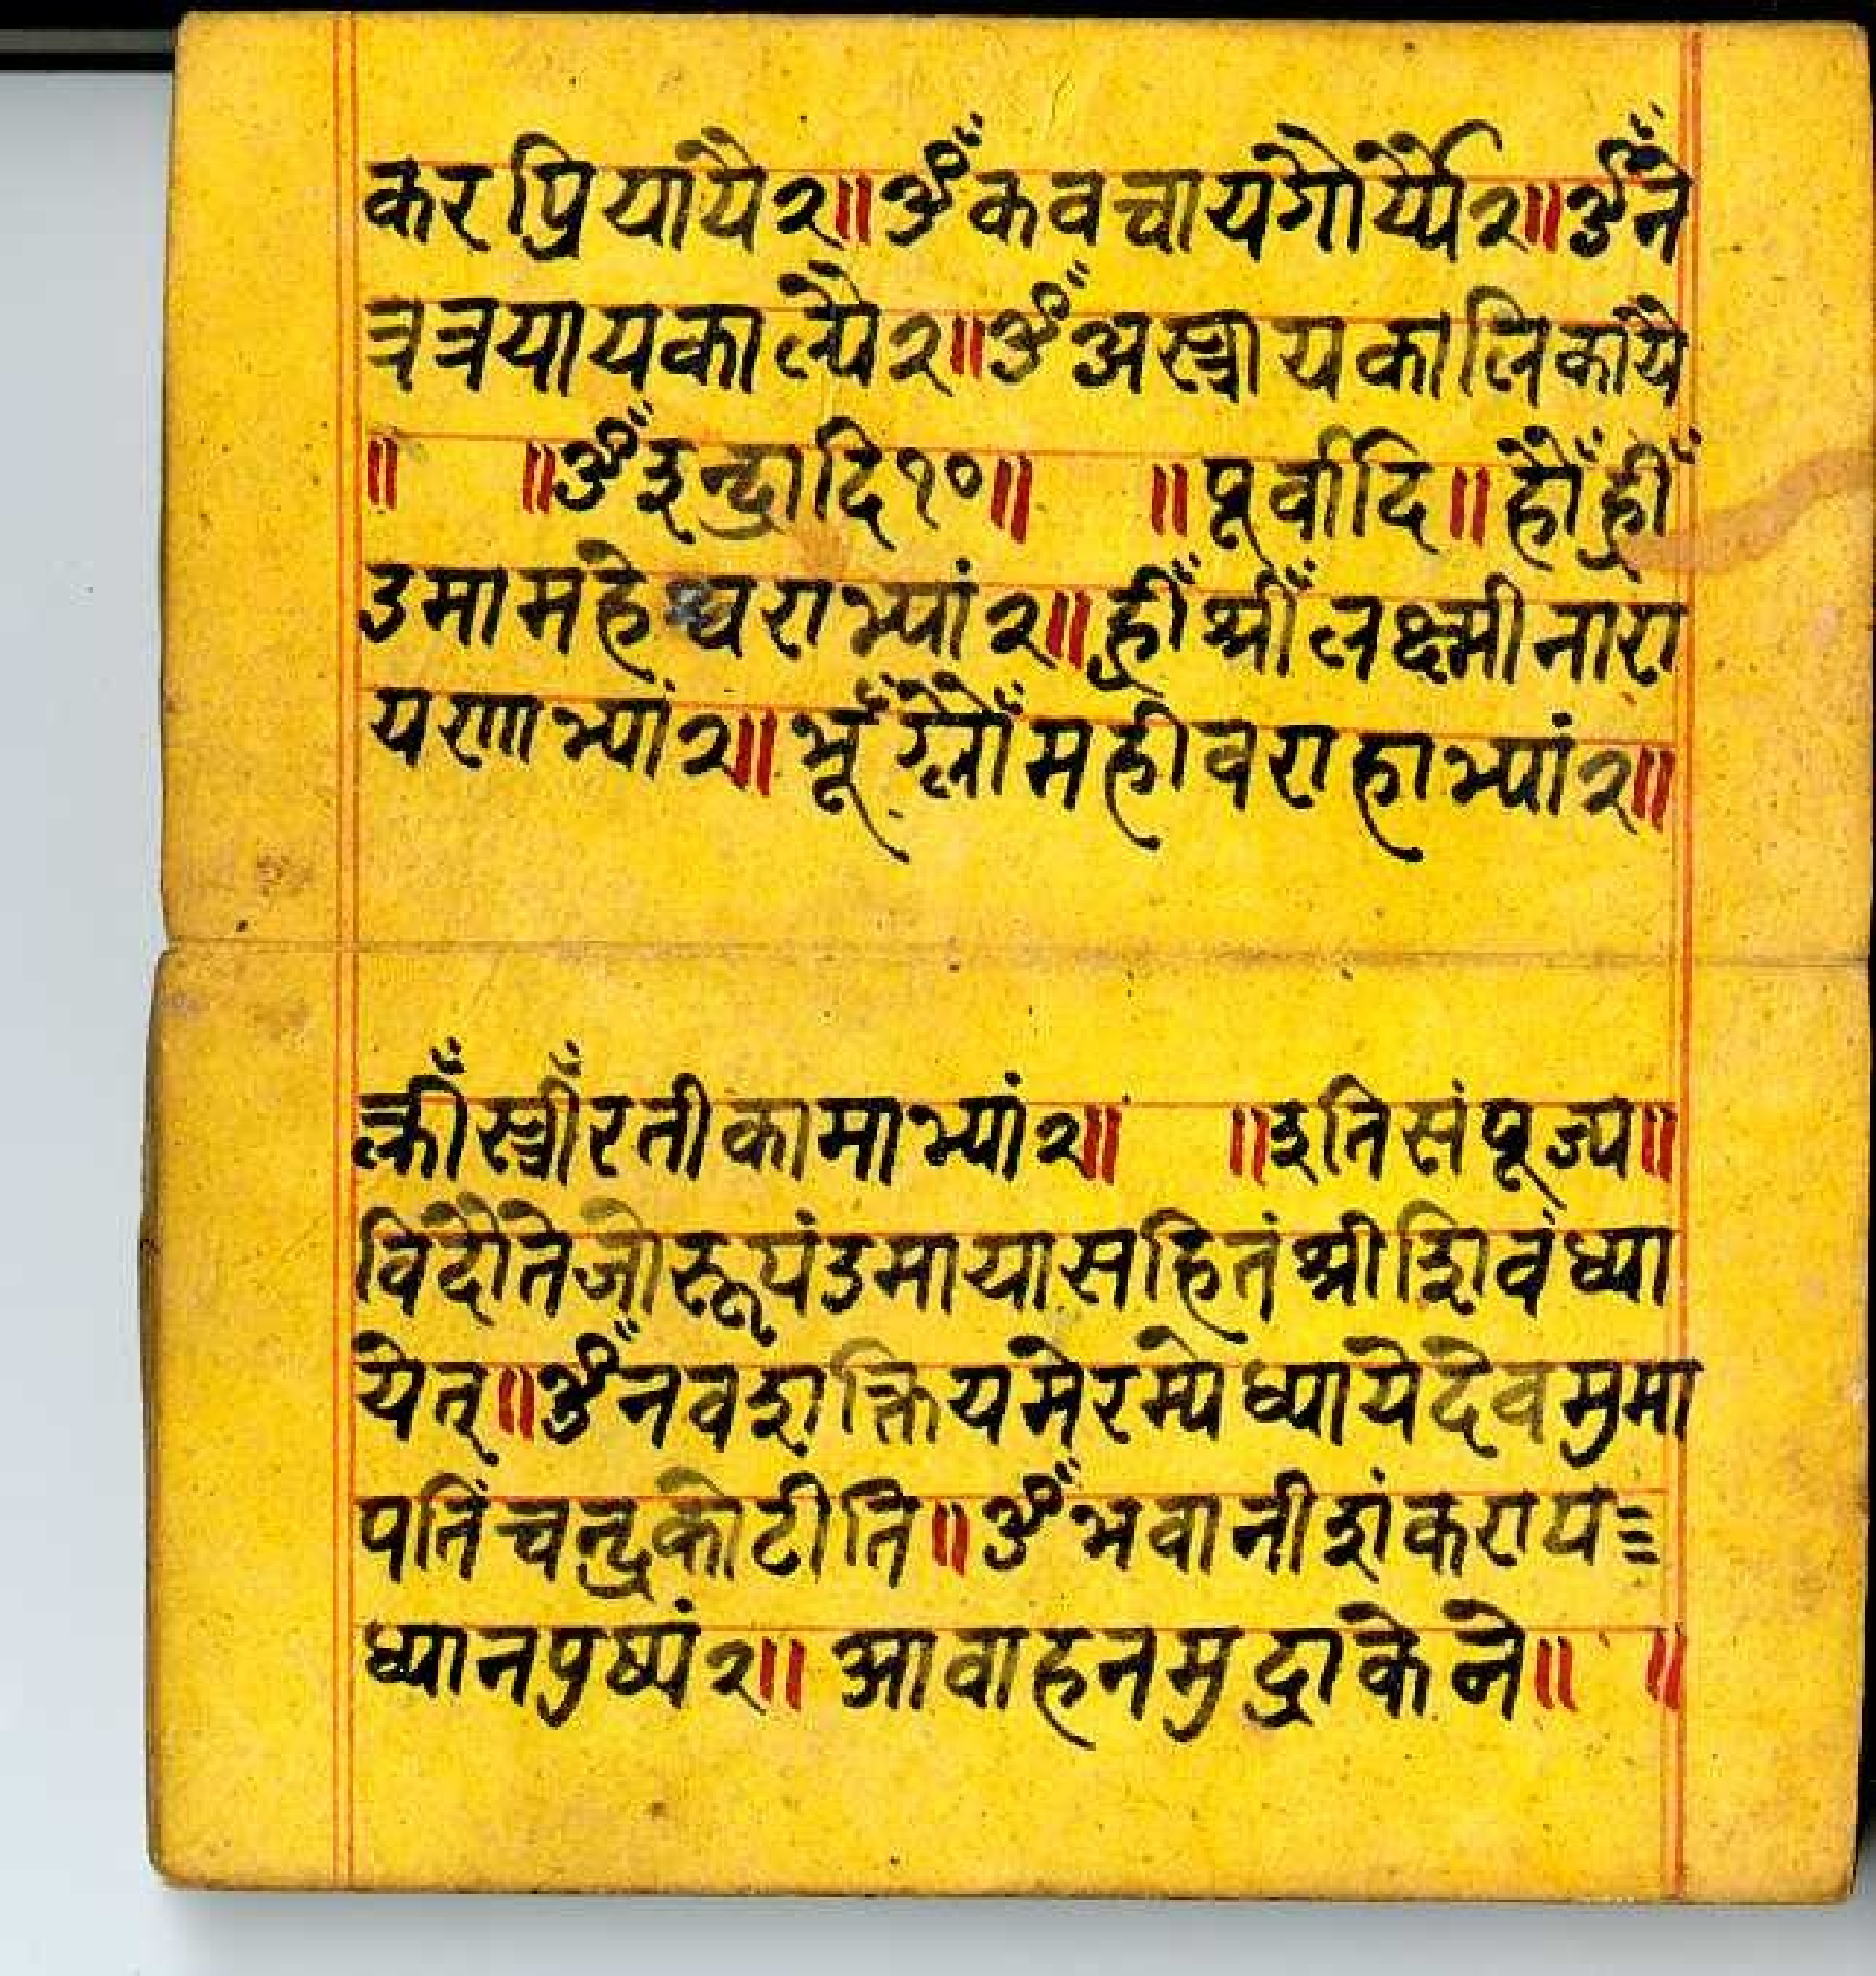 करप्रियायै२॥ॐकवचायगौर्य्यै२॥ॐने
त्रत्रयायकाल्यै२॥ॐअस्त्रायकालिकायै
॥ ॥ॐइन्द्रादि१०॥ ॥पूर्वादि॥हौँह्रीँ
उमामहेश्वराभ्यां२॥ह्रीँश्रीँलक्ष्मीनारा
यणाभ्यां२॥भूँग्लौँमहीवराहाभ्यां२॥
क्लीँस्त्रीँरतीकामाभ्यां२॥ ॥इतिसंपूज्य॥
विदौतेजोरूपंउमायासहितंश्रीशिवंध्या
येत्॥ॐनवशक्तियमेरम्येध्यायेदेवमुमा
पतिंचन्द्रकोटीति॥ॐभवानीशंकराय
ध्यानपुष्पं२॥ आवाहनमुद्राकेने॥ ॥